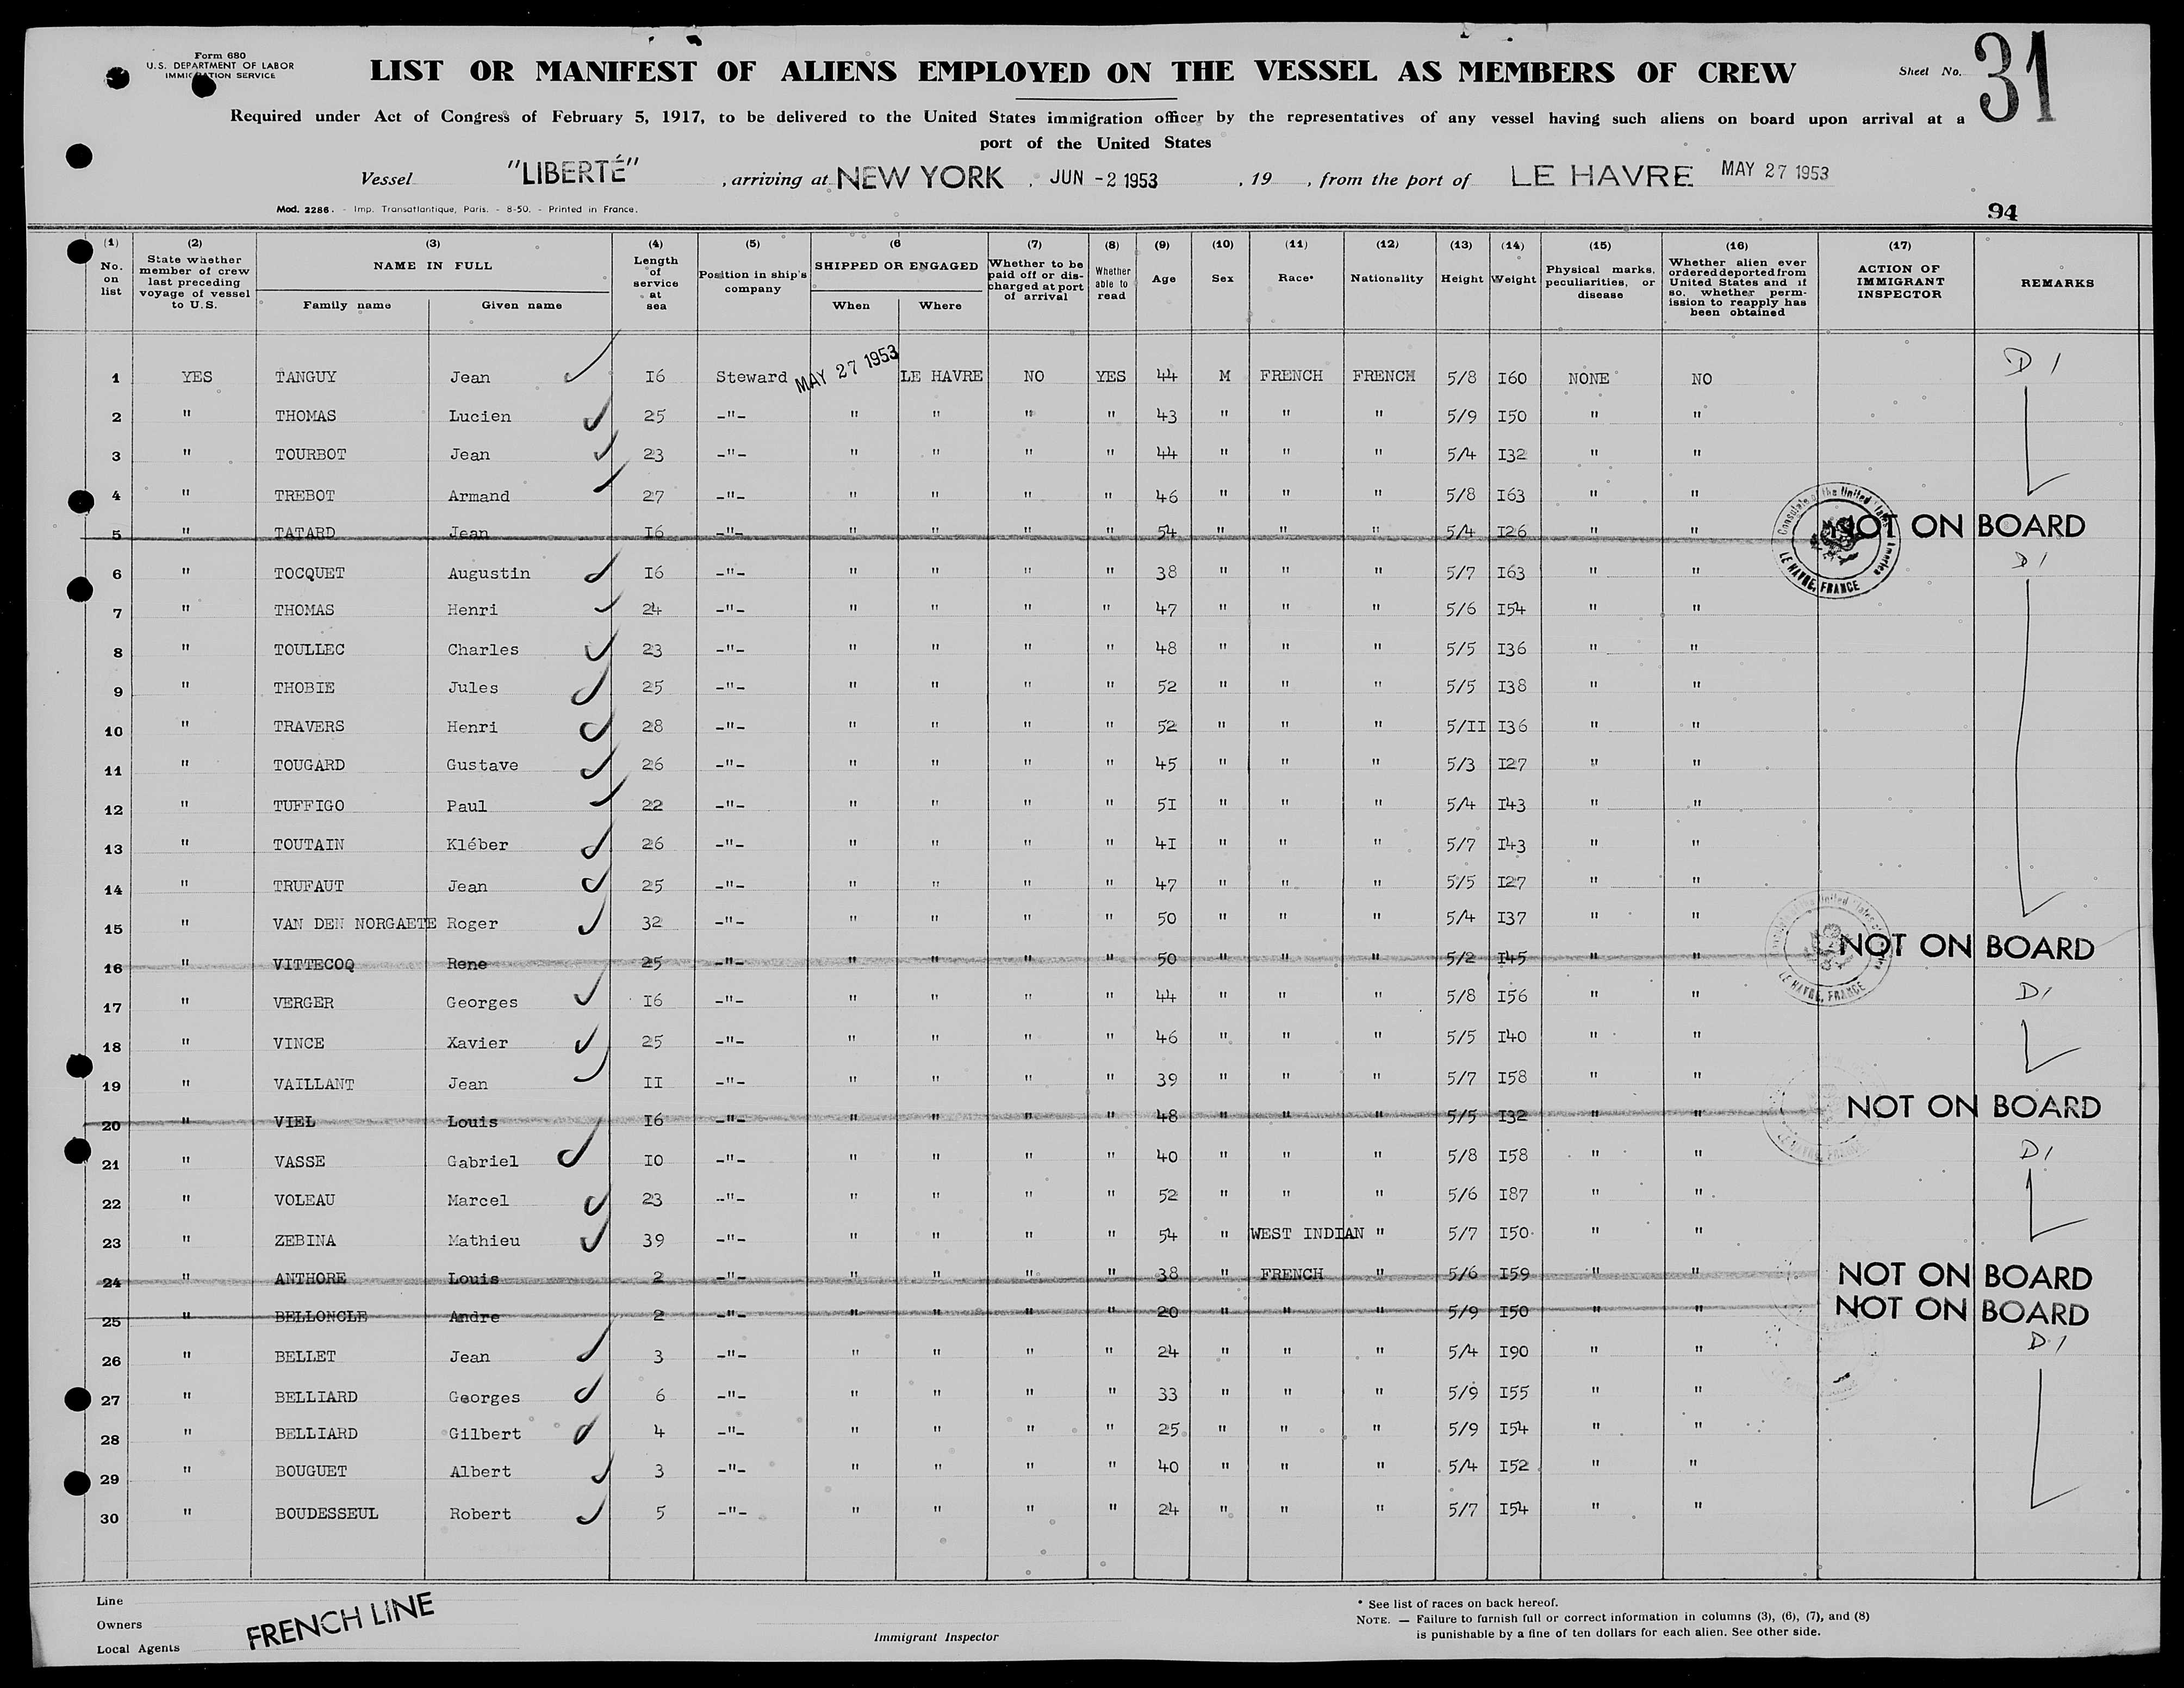 Form 680
U.S. DEPARTMENT OF LABOR
IMMIGRATION SERVICE
LIST OR MANIFEST OF ALIENS EMPLOYED ON THE VESSEL AS MEMBERS OF CREW
Sheet No. 31
Required under Act of Congress of February 5, 1917, to be delivered to the United States immigration officer by the representatives of any vessel having such aliens on board upon arrival at a
port of the United States
Vessel "LIBERTÉ" , arriving at NEW YORK . JUN -2 1953 , 19 , from the port of LE HAVRE MAY 27 1953
Mod. 2286. - Imp. Transatlantique, Paris. - 8-50. - Printed in France.
94
(1) No. on list (2) State whether member of crew last preceding voyage of vessel to U.S. (3) NAME IN FULL Family name Given name (4) Length of service at sea (5) Position in ship's company (6 SHIPPED OR ENGAGED When Where (7) Whether to be paid off or discharged at port of arrival (8) Whether able to read (9) Age (10) Sex (11) Race* (12) Nationality (13) Height (14) Weight (15) Physical marks, peculiarities, or disease (16) Whether alien ever ordered deported from United States and if so, whether permission to reapply has been obtained (17) ACTION OF IMMIGRANT INSPECTOR REMARKS
1 YES TANGUY Jean I6 Steward MAY 27 1953 LE HAVRE NO YES 44 M FRENCH FRENCH 5/8 I60 NONE NO D1
2 " THOMAS Lucien 25 -"- " " " " 43 " " " 5/9 I50 " "
3 " TOURBOT Jean 23 -"- " " " " 44 " " " 5/4 I32 " "
4 " TREBOT Armand 27 -"- " " " " 46 " " " 5/8 I63 " "
5 " TATARD Jean I6 -"- " " " " 54 " " " 5/4 I26 " " NOT ON BOARD
6 " TOCQUET Augustin I6 -"- " " " " 38 " " " 5/7 I63 " " D1
7 " THOMAS Henri 24 -"- " " " " 47 " " " 5/6 I54 " "
8 " TOULLEC Charles 23 -"- " " " " 48 " " " 5/5 I36 " "
9 " THOBIE Jules 25 -"- " " " " 52 " " " 5/5 I38 " "
10 " TRAVERS Henri 28 -"- " " " " 52 " " " 5/II I36 " "
11 " TOUGARD Gustave 26 -"- " " " " 45 " " " 5/3 I27 " "
12 " TUFFIGO Paul 22 -"- " " " " 5I " " " 5/4 I43 " "
13 " TOUTAIN Kléber 26 -"- " " " " 4I " " " 5/7 I43 " "
14 " TRUFAUT Jean 25 -"- " " " " 47 " " " 5/5 I27 " "
15 " VAN DEN NORGAETE Roger 32 -"- " " " " 50 " " " 5/4 I37 " "
16 " VITTECOQ Rene 25 -"- " " " " 50 " " " 5/2 I45 " " NOT ON BOARD
17 " VERGER Georges I6 -"- " " " " 44 " " " 5/8 I56 " " D1
18 " VINCE Xavier 25 -"- " " " " 46 " " " 5/5 I40 " "
19 " VAILLANT Jean II -"- " " " " 39 " " " 5/7 I58 " "
20 " VIEL Louis I6 -"- " " " " 48 " " " 5/5 I32 " " NOT ON BOARD
21 " VASSE Gabriel IO -"- " " " " 40 " " " 5/8 I58 " " D1
22 " VOLEAU Marcel 23 -"- " " " " 52 " " " 5/6 I87 " "
23 " ZEBINA Mathieu 39 -"- " " " " 54 " WEST INDIAN " 5/7 I50 " "
24 " ANTHORE Louis 2 -"- " " " " 38 " FRENCH " 5/6 I59 " " NOT ON BOARD
25 " BELLONCLE Andre 2 -"- " " " " 20 " " " 5/9 I50 " " NOT ON BOARD
26 " BELLET Jean 3 -"- " " " " 24 " " " 5/4 I90 " " D1
27 " BELLIARD Georges 6 -"- " " " " 33 " " " 5/9 I55 " "
28 " BELLIARD Gilbert 4 -"- " " " " 25 " " " 5/9 I54 " "
29 " BOUGUET Albert 3 -"- " " " " 40 " " " 5/4 I52 " "
30 " BOUDESSEUL Robert 5 -"- " " " " 24 " " " 5/7 I54 " "
Consulate of the United States America LE HAVRE, FRANCE
LE HAVRE, FRANCE
Line
Owners
Local Agents
FRENCH LINE
Immigrant Inspector
* See list of races on back hereof.
NOTE. — Failure to furnish full or correct information in columns (3), (6), (7), and (8)
is punishable by a fine of ten dollars for each alien. See other side.